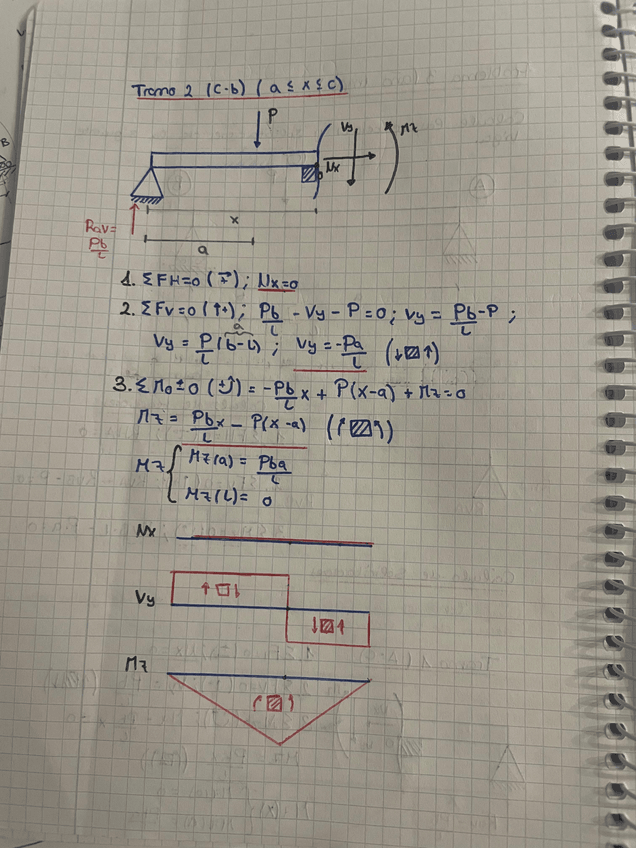 Tramo 2 (C-b) (a ≤ x ≤ c)
P
Vy
Mz
Nx
x
a
Rav=
Pb/L
1. ΣFH=0 (→+); Nx=0
2. ΣFv=0 (↑+); Pb/L - Vy - P = 0; Vy = Pb/L - P ;
a
Vy = P/L (b-L) ; Vy = -Pa/L (↓▨↑)
3. ΣMo=0 (+) = -Pb/L x + P(x-a) + Mz = 0
Mz = Pbx/L - P(x-a) (▨)
Mz { Mz(a) = Pba/L
Mz(L) = 0
Nx
Vy ↑□↓
↓▨↑
Mz
(▨)